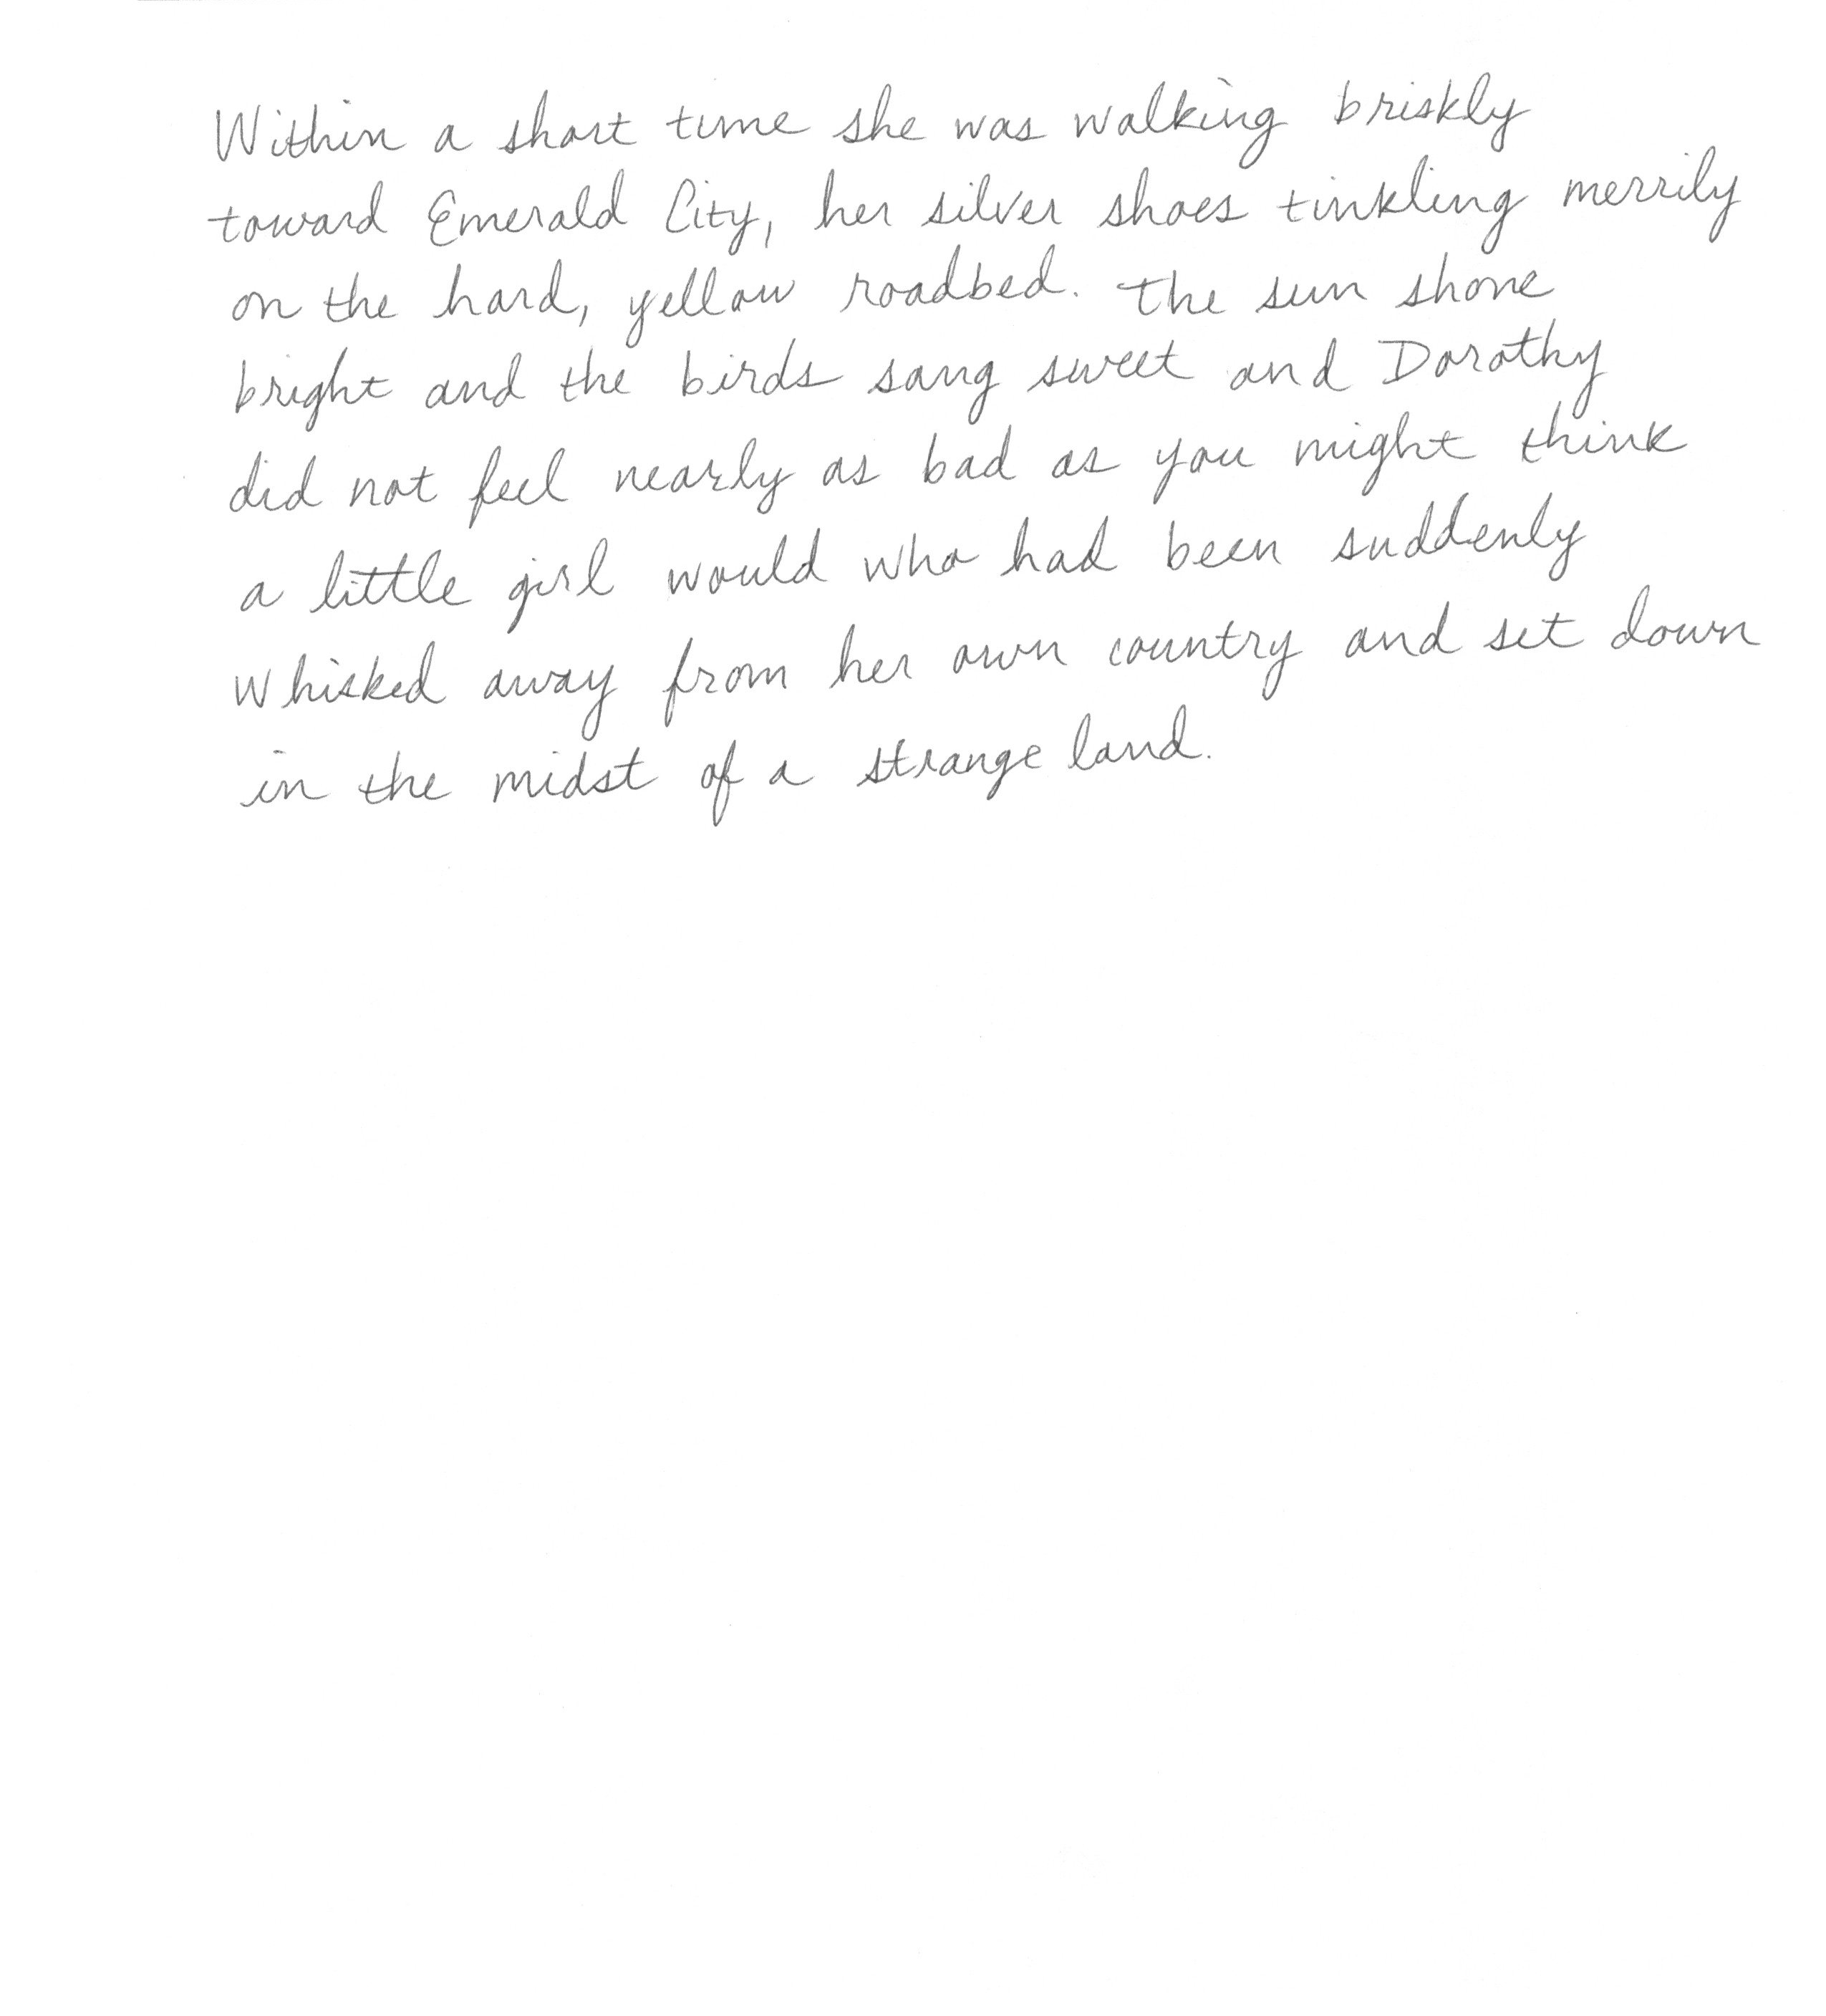 Within a short time she was walking briskly
toward Emerald City, her silver shoes tinkling merrily
on the hard, yellow roadbed. The sun shone
bright and the birds sang sweet and Dorothy
did not feel nearly as bad as you might think
a little girl would who had been suddenly
whisked away from her own country and set down
in the midst of a strange land.